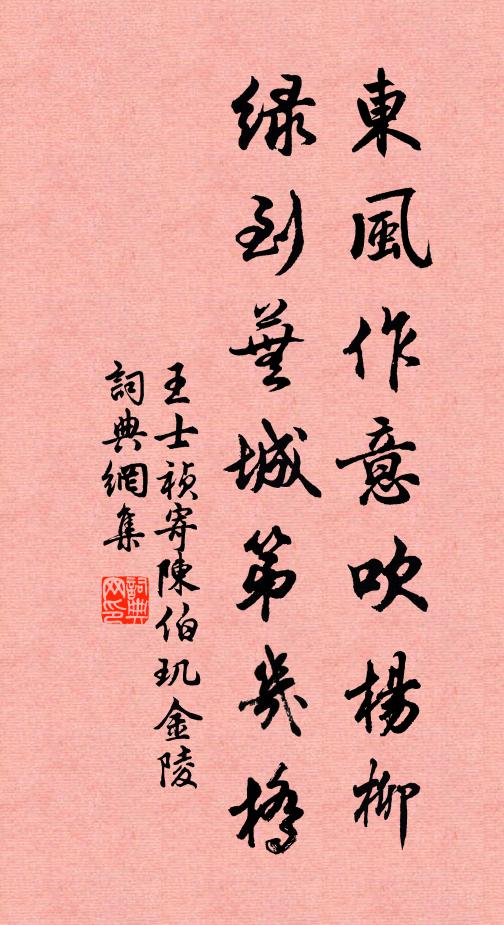 東風作意吹楊柳
綠到蕪城第幾橋
王士禎寄陳伯璣金陵
詞典網集
詞典網印